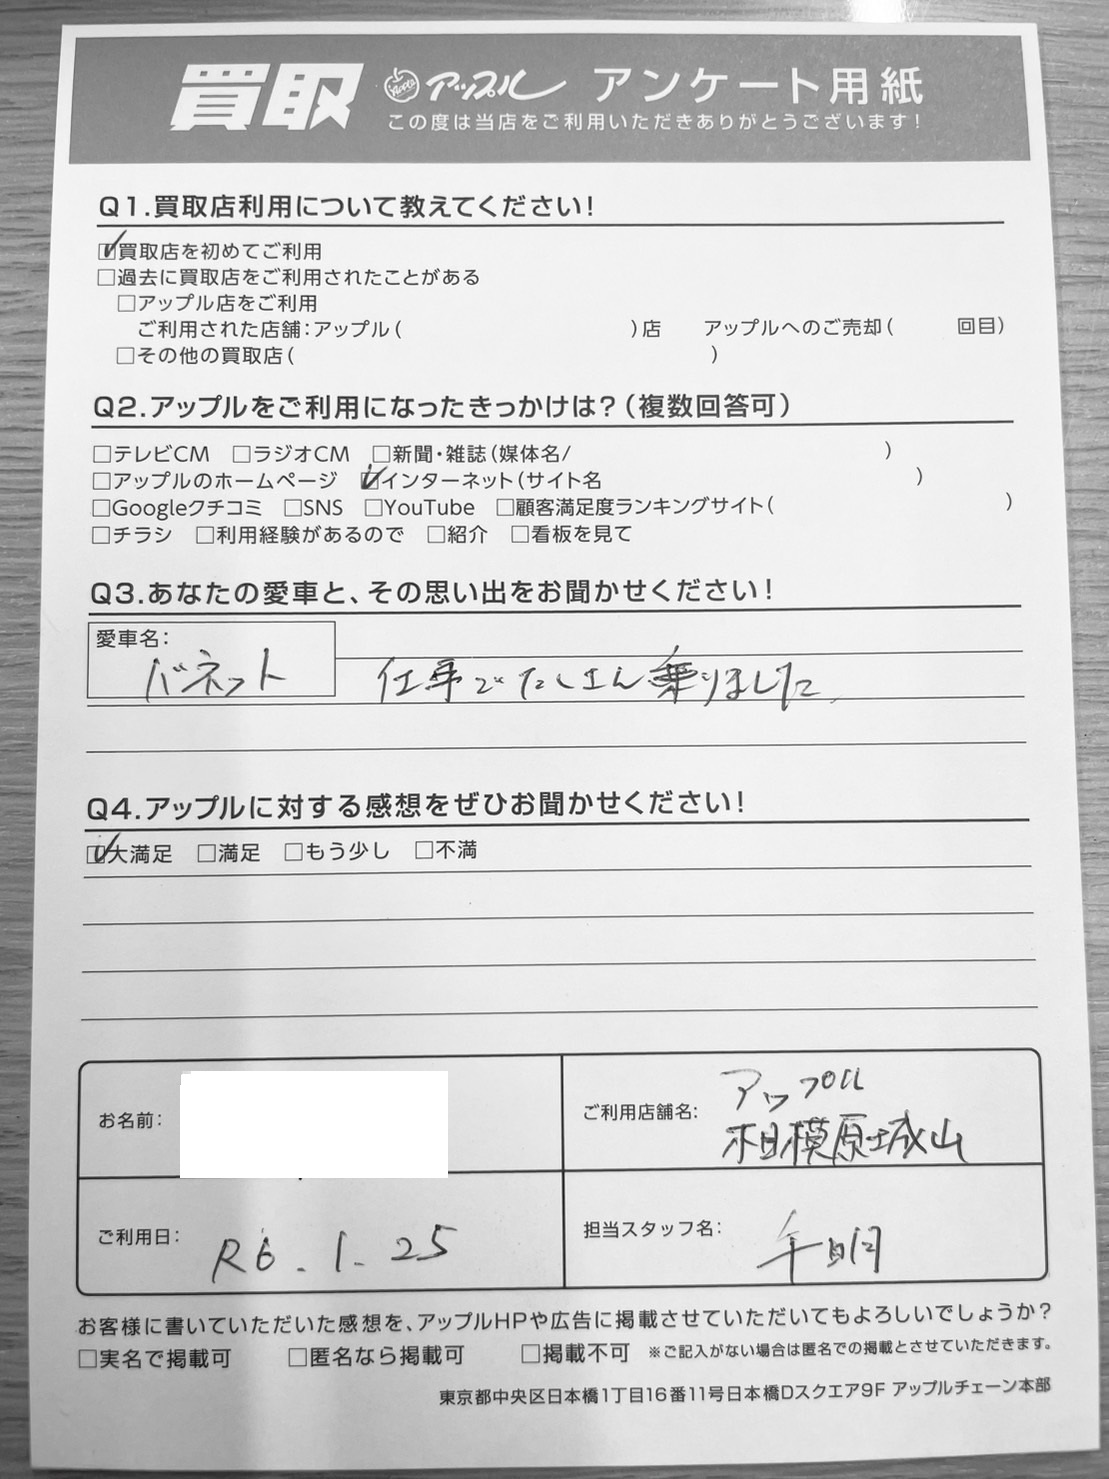 買取 Apple アップル アンケート用紙
この度は当店をご利用いただきありがとうございます!
Q1.買取店利用について教えてください!
☑買取店を初めてご利用
□過去に買取店をご利用されたことがある
□アップル店をご利用
ご利用された店舗:アップル( )店 アップルへのご売却( 回目)
□その他の買取店( )
Q2.アップルをご利用になったきっかけは?(複数回答可)
□テレビCM □ラジオCM □新聞・雑誌(媒体名/ )
□アップルのホームページ ☑インターネット(サイト名 )
□Googleクチコミ □SNS □YouTube □顧客満足度ランキングサイト( )
□チラシ □利用経験があるので □紹介 □看板を見て
Q3.あなたの愛車と、その思い出をお聞かせください!
愛車名:
バネット 仕事でたくさん乗りました。
Q4.アップルに対する感想をぜひお聞かせください!
☑大満足 □満足 □もう少し □不満
お名前:
ご利用店舗名: アップル
相模原城山
ご利用日: R6.1.25
担当スタッフ名:
お客様に書いていただいた感想を、アップルHPや広告に掲載させていただいてもよろしいでしょうか?
□実名で掲載可 □匿名なら掲載可 □掲載不可 ※ご記入がない場合は匿名での掲載とさせていただきます。
東京都中央区日本橋1丁目16番11号日本橋Dスクエア9F アップルチェーン本部